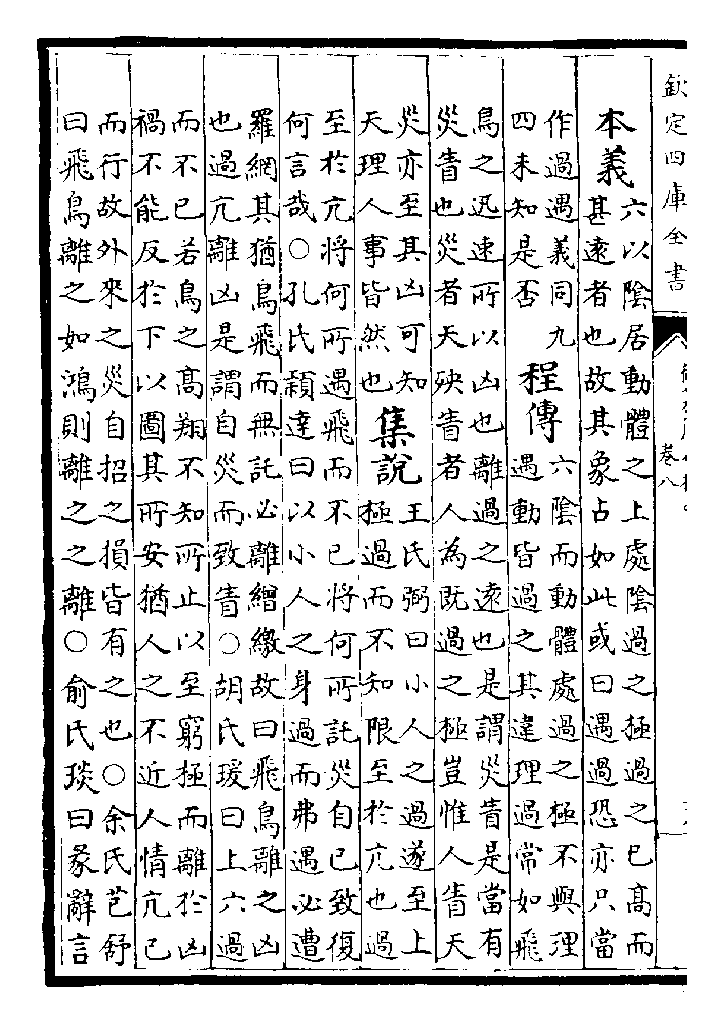 欽定四庫全書
卷八
本義六以陰居動體之上處陰過之極過之已髙而
甚逺者也故其象占如此或曰遇過恐亦只當
作過遇義同九
四未知是否
程傳六陰而動體處過之極不與理
遇動皆過之其違理過常如飛
鳥之迅速所以凶也離過之逺也是謂災眚是當有
災眚也災者天殃眚者人為既過之極豈惟人眚天
災亦至其凶可知
天理人事皆然也
集說王氏弼曰小人之過遂至上
極過而不知限至於亢也過
至於亢將何所遇飛而不已將何所託災自己致復
何言哉○孔氏穎達曰以小人之身過而弗遇必遭
羅網其猶鳥飛而無託必離繒繳故曰飛鳥離之凶
也過亢離凶是謂自災而致眚○胡氏瑗曰上六過
而不已若鳥之髙翔不知所止以至窮極而離於凶
禍不能反於下以圖其所安猶人之不近人情亢己
而行故外來之災自招之損皆有之也○余氏芑舒
曰飛鳥離之如鴻則離之之離○俞氏琰曰彖辭言